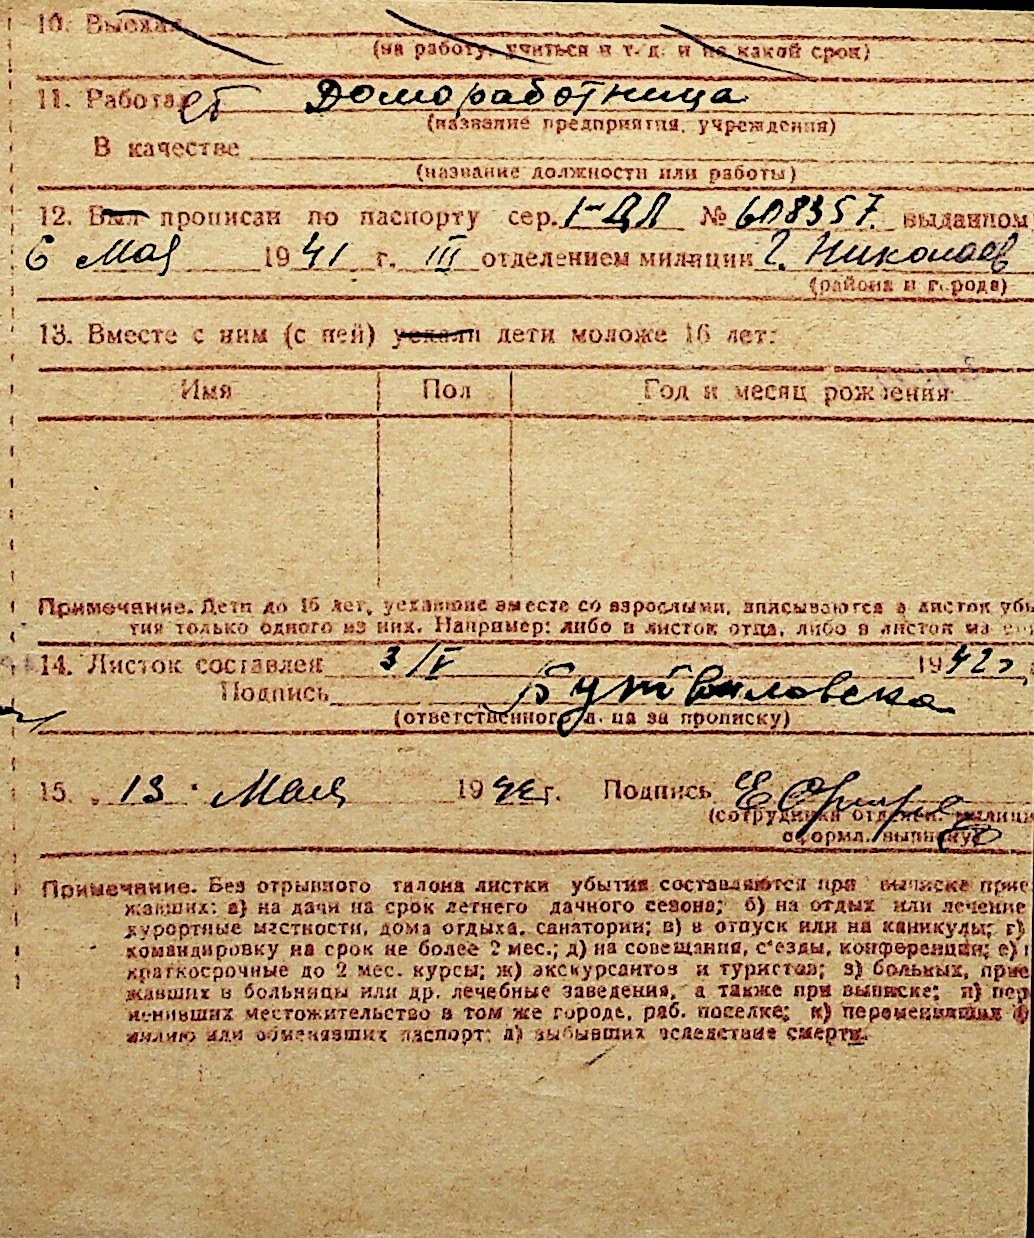 10. Выехал
(на работу, учиться и т. д. и на какой срок)
11. Работает Домоработница
(название предприятия, учреждения)
В качестве
(название должности или работы)
12. Был прописан по паспорту сер. I-ЦЛ № 608357. выданном
6 Мая 1941 г. III отделением милиции г. Николаев
(района и города)
13. Вместе с ним (с ней) уехали дети моложе 16 лет:
Имя Пол Год и месяц рождения
Примечание. Дети до 16 лет, уехавшие вместе со взрослыми, вписываются в листок убы
тия только одного из них. Например: либо в листок отца, либо в листок ма
14. Листок составлен 3/V 1942 г.
Подпись
(ответственного лица за прописку)
15. 13 Мая 1942 г. Подпись
(сотрудника отделен. милици
оформл. выписку)
Примечание. Без отрывного талона листки убытия составляются при выписке прие
жавших: а) на дачи на срок летнего дачного сезона; б) на отдых или лечение
курортные местности, дома отдыха, санатории; в) в отпуск или на каникулы; г)
командировку на срок не более 2 мес.; д) на совещания, с'езды, конференции; е)
краткосрочные до 2 мес. курсы; ж) экскурсантов и туристов; з) больных, прие
жавших в больницы или др. лечебные заведения, а также при выписке; и) пер
менивших местожительство в том же городе, раб. поселке; к) переменивших ф
милию или обменявших паспорт; л) выбывших вследствие смерти.